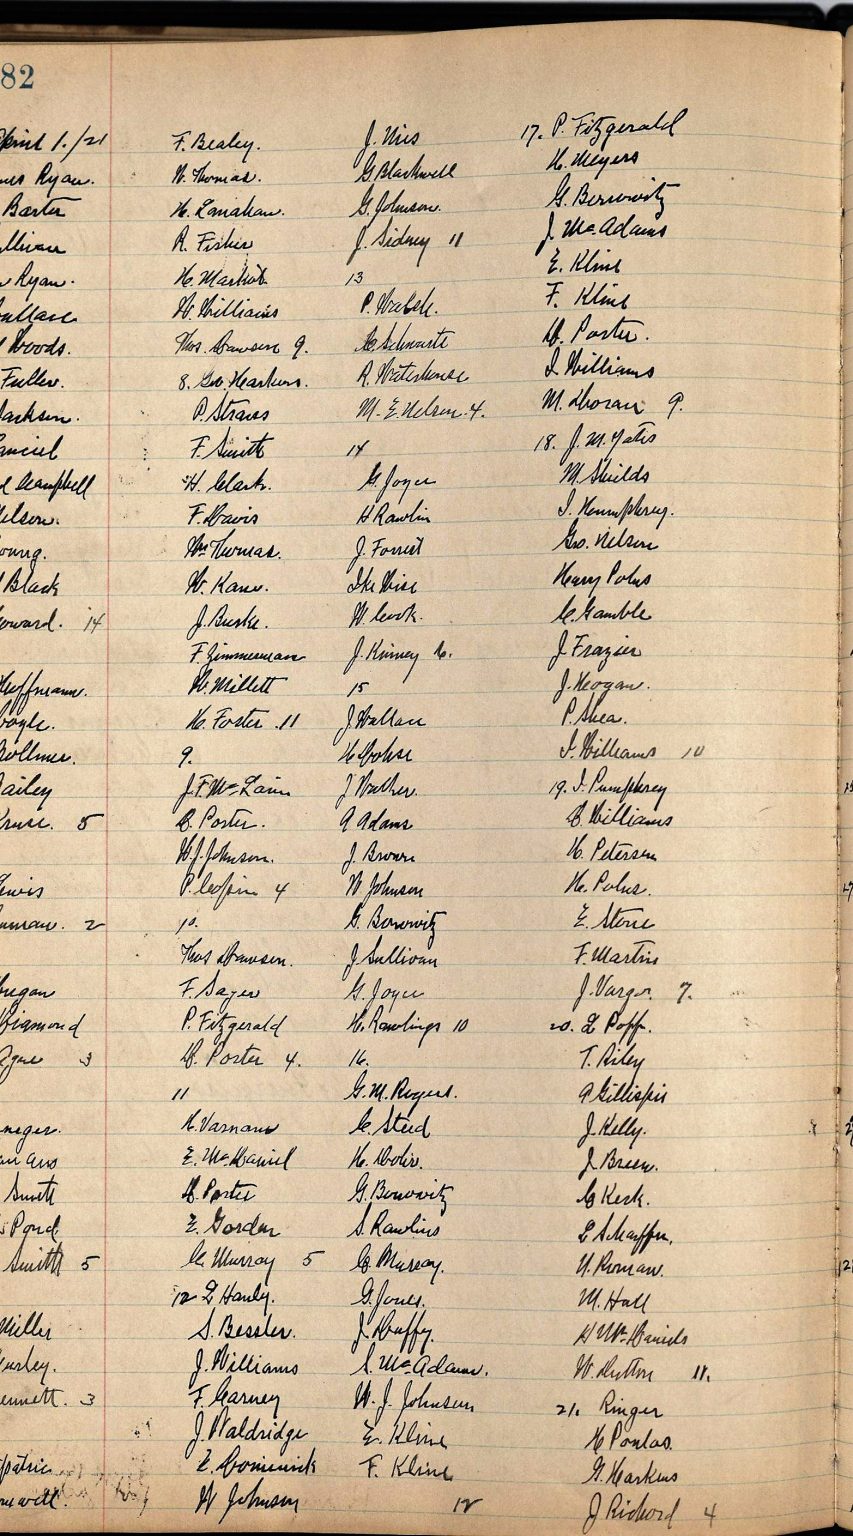 82
April 1./21
Ryan.
Barter
Ryan.
Wallace
Woods.
Fuller.
Jackson.
Campbell
Nelson.
Young.
Black
Howard. 14
Hoffmann.
Bailey
Kruse. 5
Lewis
2
Diamond
3
Smith
Pond
Smith 5
Miller
Bennett. 3
F. Bealey.
W. Thomas.
H. Lanahan.
R. Fisher
H. Markot.
W. Williams
Thos. Dawson 9.
8. Geo. Harkins.
P. Strauss
F. Smith
H. Clark.
F. Davis
Wm Thomas.
W. Kane.
J. Burke.
F. Zimmerman
W. Millett
H. Foster .11
9.
J. F. McLain
D. Porter.
W. J. Johnson.
P. 4
10.
Thos Dawson.
F. Sayer
P. Fitzgerald
D. Porter 4.
11
H. Varnam
E. McDaniel
D. Porter
E. Gorden
C. Murray 5
12 L Hanly.
S. Bessler.
J. Williams
F. Carney
J. Waldridge
E. Dominick
W Johnson
J. Nies
G Blackwell
G. Johnson.
J. Sidney 11
13
P. Walsh.
C. Schwartz
R. Waterhouse
M. E. Nelson. 4.
14
G. Joyce
H Rawlin
J. Forrest
Ike Wise
W. Cook.
J. Kinney 6.
15
J Wallace
H
J Walker.
A Adams
J. Brown
W Johnson
G. Borowitz
J Sullivan
G. Joyce
H. Rawlings 10
16.
G. M. Rogers.
C. Steed
H.
G. Borowitz
S. Rawlins
C. Murray.
G. Jones.
J. Duffy.
S. McAdams.
W. J. Johnson
E. Kline
F. Kline
12
17. P. Fitzgerald
H. Meyers
G. Berrowitz
J. McAdams
E. Kline
F. Kline
D. Porter.
I. Williams
M. Dhoran 9.
18. J. M. Yates
M. Shields
I. Humphrey.
Geo. Nelson
Harry Polus
C. Gamble
J. Frazier
J. Hogan.
P. Shea.
I. Williams 10
19. I. Pumphrey
C Williams
H. Petersen
H. Polus.
E. Stone
F. Martin
J. Vargo. 7.
20. L Popp.
T. Riley
A Gillispie
J. Kelly.
J. Breen.
C Kerk.
L Schaeffer.
N. Roman.
M. Hall
H McDaniels
W. Dutton 11.
21. Ringer
H Pontas.
G. Harkins
J Richard 4